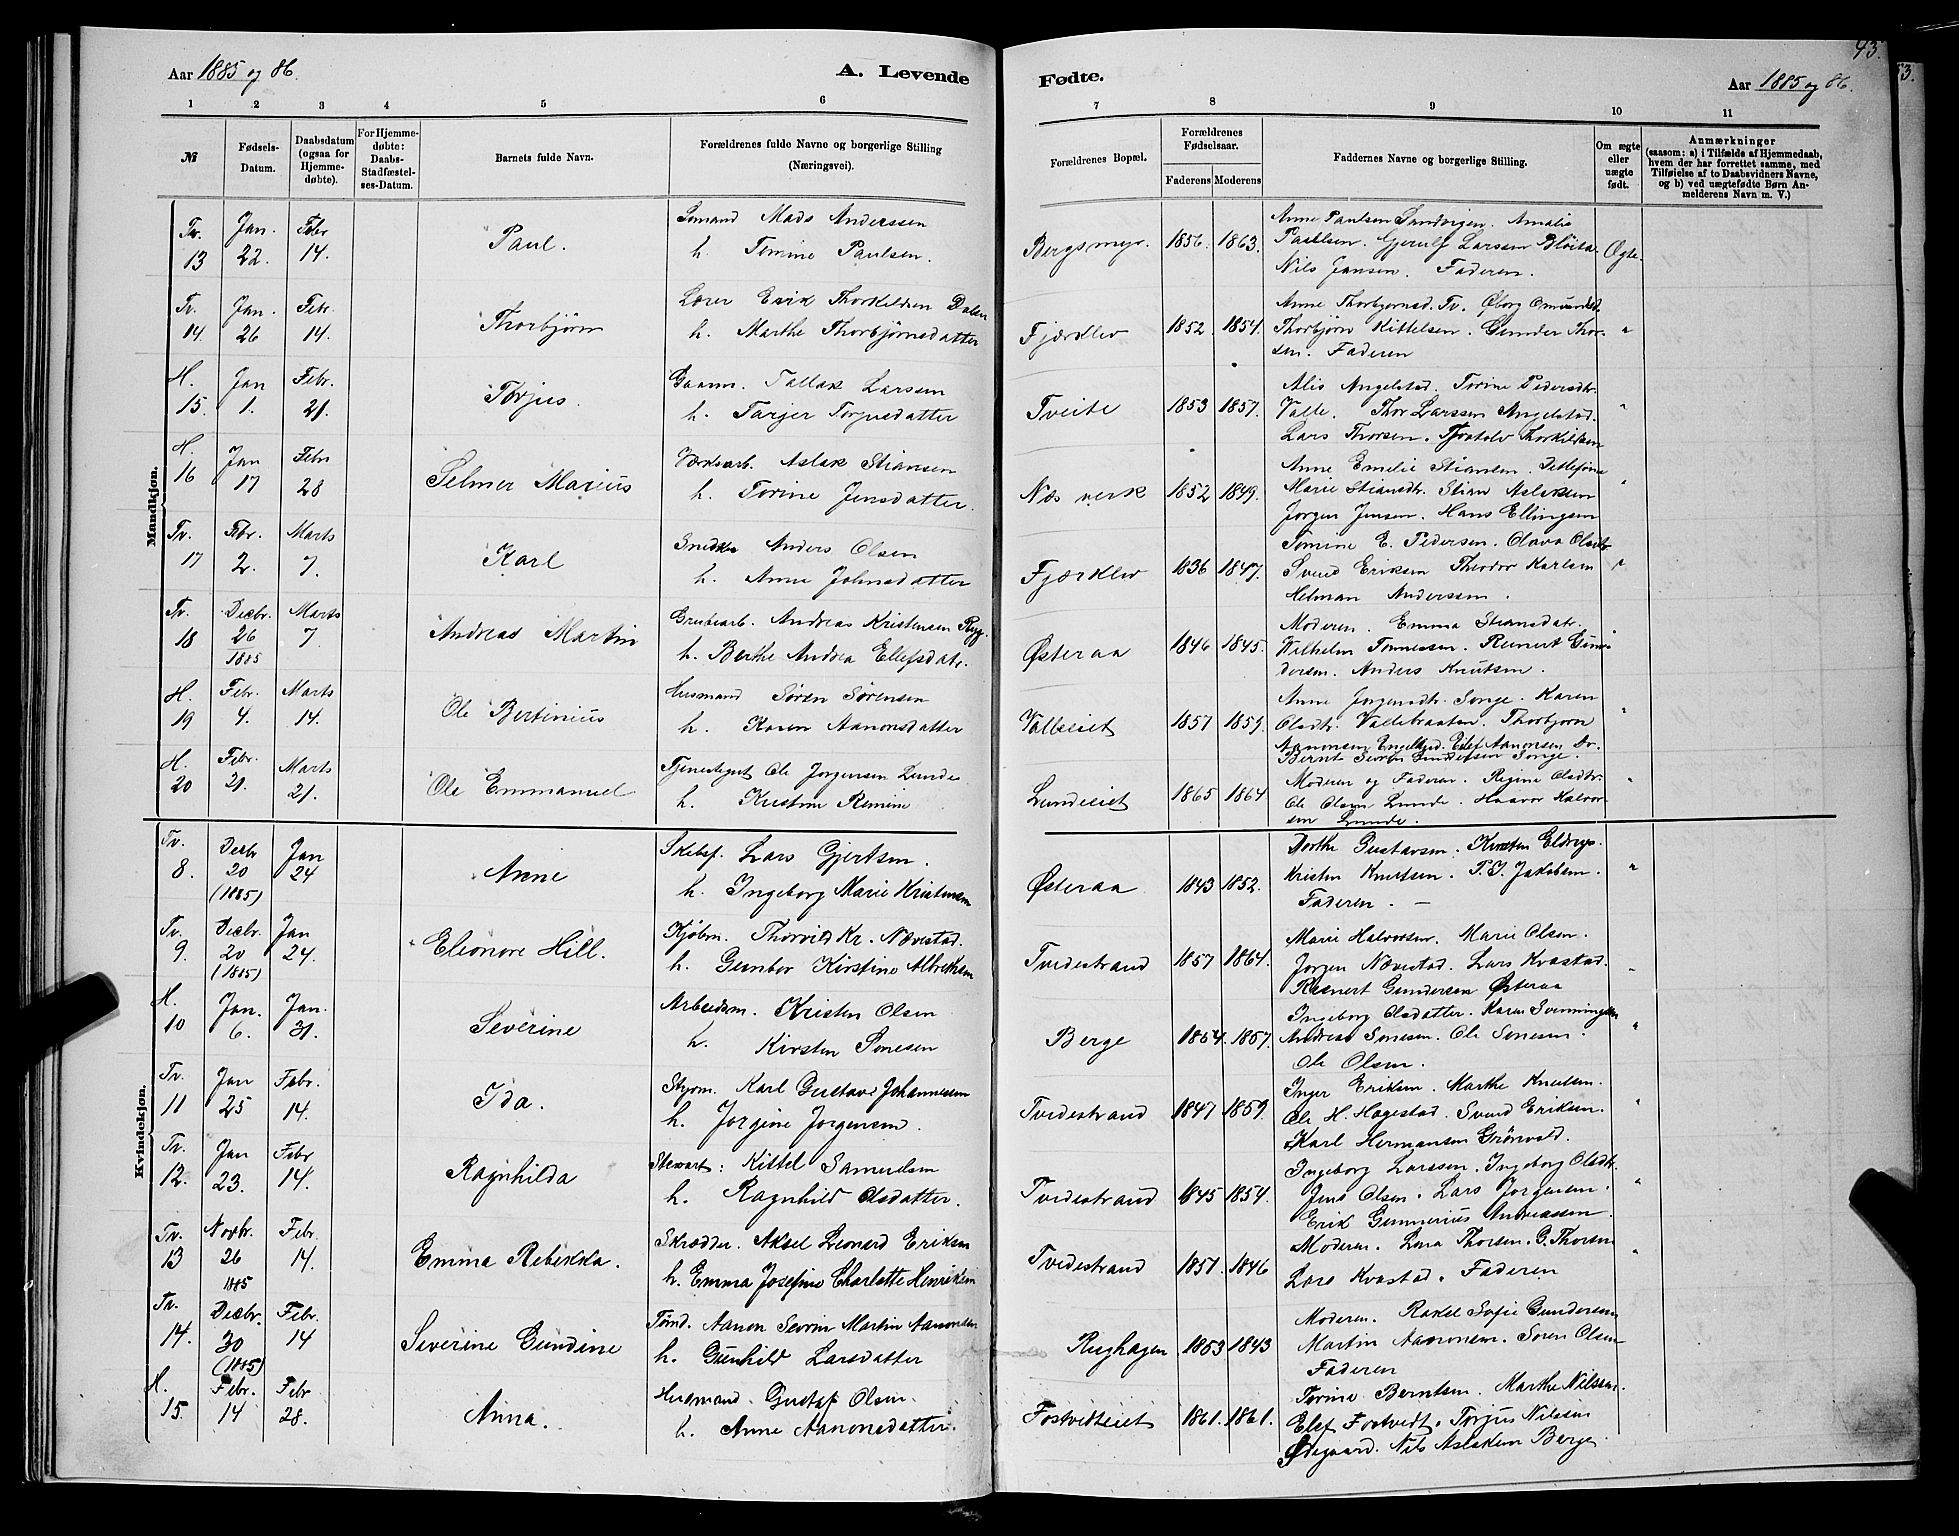 43.
53.
Aar 1885 og 86.
A. Levende
Fødte.
Aar 1885 og 86.
1 2 3 4 5 6
7 8 9 10 11
№
Fødsels-Datum.
Daabsdatum (ogsaa for Hjemmedøbte).
For Hjemmedøbte: Daabs-Stadfæstelses-Datum.
Barnets fulde Navn.
Forældrenes fulde Navne og borgerlige Stilling (Næringsvei).
Forældrenes Bopæl.
Forældrenes Fødselsaar.
Faderens Moderens
Faddernes Navne og borgerlige Stilling.
Om ægte eller uægte født.
Anmærkninger
(saasom: a) i Tilfælde af Hjemmedaab, hvem der har forrettet samme, med Tilføielse af to Daabsvidners Navne, og b) ved uægtefødte Børn Anmelderens Navn m. V.)
Mandkjøn.
Tv. 13 Jan. 22. Febr 14. Paul. Sømand Mads Anderssen
h. Tomine Paulsen.
Bergsmyr. 1856. 1863. Anne Paulsen Sandvigen. Amalie
Paulsen. Gjerulf Larssen Bløita.
Nils Jansen. Faderen. Ægte.
Tv. 14. Jan. 26 Febr. 14. Thorbjørn Lærer Erik Thorkildsen Dalen
h. Marthe Thorbjørnsdatter
Fjærklev 1852. 1854. Anne Thorbjørnsd. Tv. Øborg Omundsd.
Thorbjørn Kittelsen. Gunder Thor-
sen. Faderen "
H. 15. Jan 1. Febr. 21. Torjus. Gaam. Tallak Larsen
h. Tarjer Torjusdatter
Tveite 1853 1857. Alis Angelstad. Torine Pedersdtr.
Valle. Thor Larssen Angelstad.
Lars Thorsen. Tjøstolv Thorkildsen "
H. 16 Jan 17 Febr 28 Selmer Marius Værksarb. Aslak Stiansen
h. Torine Jensdatter.
Næs verk 1852 1849. Anne Emelie Stiansen. Detlefine
Marie Stiansdtr. Stian Aslaksen
Jørgen Jensen. Hans Ellingsen "
Tv. 17 Febr. 2. Marts 7. Karl Snedker Anders Olsen
h. Anne Johnsdatter
Fjærklev 1836 1847. Tomine E. Pedersen. Olava Olsdtr
Svend Eriksen Theodor Karlsen
Helman Anderssen. "
Tv. 18 Decbr. 26 1885 Marts 7. Andreas Martin Grubearb. Andreas Kristensen Ryg.
h. Berthe Andrea Ellefsdatr.
Østeraa 1846 1845. Moderen. Emma Stiansdat.
Wilhelm Tønnessen. Reinert Gun-
dersen. Anders Knutsen.
H. 19 Febr. 4. Marts 14. Ole Bertinius Husmand Søren Sørensen
h. Karen Aanonsdatter
Valleeiet 1857 1859. Anne Jørgensdtr. Songe. Karen
Olsdtr. Vallebraaten. Thorbjørn
Aanonsen Engelhjd. Elef Aanonsen Do.
Bernt Søren Gundersen Songe. "
H. 20 Febr. 21. Marts 21. Ole Emmanuel Tjenestegut Ole Jørgensen Lunde
h. Kristine Remine
Lundeeiet 1865 1864 Moderen og Faderen. Regine Olsdtr.
Ole Olsen Lunde. Haavor Halvor-
sen Lunde. "
Kvindekjøn.
Tv. 8. Decbr 20 (1885) Jan 24 Anne Skibsf. Lars Gjertsen.
h. Ingeborg Marie Kristensen
Østeraa 1843 1852. Dorthe Gustavsen. Kirsten Eldrup.
Kristen Knutsen. P. J. Jakobsen.
Faderen. — "
Tv. 9. Decbr. 20 (1885) Jan 24. Eleonore Hill. Kjøbm. Thorvild Kr. Nævestad.
h. Gunbor Kirstine Albrektsen
Tvedestrand 1857 1864. Marie Halvorsen. Marie Olsen.
Jørgen Nævestad. Lars Kvastad.
Reinert Gundersen Østeraa "
H. 10 Jan. 6. Jan. 31. Severine Arbeidsm. Kristen Olsen
h. Kirsten Sønesen
Berge 1854. 1857. Ingeborg Olsdatter. Karen Svenningsen
Andreas Sønesen. Ole Sønesen
Ole Olsen. "
Tv. 11 Jan 25 Febr. 14. Ida. Styrm. Karl Gustav Johannesen
h. Jørgine Jørgensen.
Tvedestrand 1847 1859. Inger Eriksen. Marthe Knutsen.
Ole H. Hagestad. Svend Eriksen.
Karl Hermansen Grønvold. "
Tv. 12. Jan 23. Febr 14. Ragnhilda Stewart: Kittel Samuelsen
h. Ragnhild Olsdatter.
Tvedestrand 1845 1854. Ingeborg Larssen. Ingeborg Olsdtr.
Jens Olsen. Lars Jørgensen.
Erik Gunnerius Andreassen. "
Tv. 13 Novbr. 26 1885 Febr. 14. Emma Rebekka. Skrædder. Aksel Leonard Eriksen
h. Emma Josefine Charlotte Henriksen
Tvedestrand 1851. 1846 Moderen. Lena Thorsen. G. Thorsen
Lars Kvastad. Faderen "
Tv. 14. Decbr. 30 (1885) Febr. 14 Severine Gundine Tømd. Aanon Severin Martin Aanonsen
h. Gunhild Larsdatter
Rughagen 1853 1843 Moderen. Rakel Sofie Gundersen
Martin Aanonsen. Søren Olsen
Faderen
H. 15. Febr. 14 Febr 28. Anna. Husmand. Gustaf Olsen.
h. Anne Aanonsdatter.
Fostvedteiet 1861. 1861. Torine Berntsen. Marthe Nilssen.
Elef Fostvedt. Torjus Nilsen
Ødegaard. Nils Aslaksen Berge.